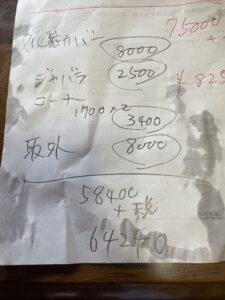 化粧カバー
8000
75000
+
4825
ジャバラ 2500
コーナー
1700×2
3400
取外 8000
58400
+税
64240